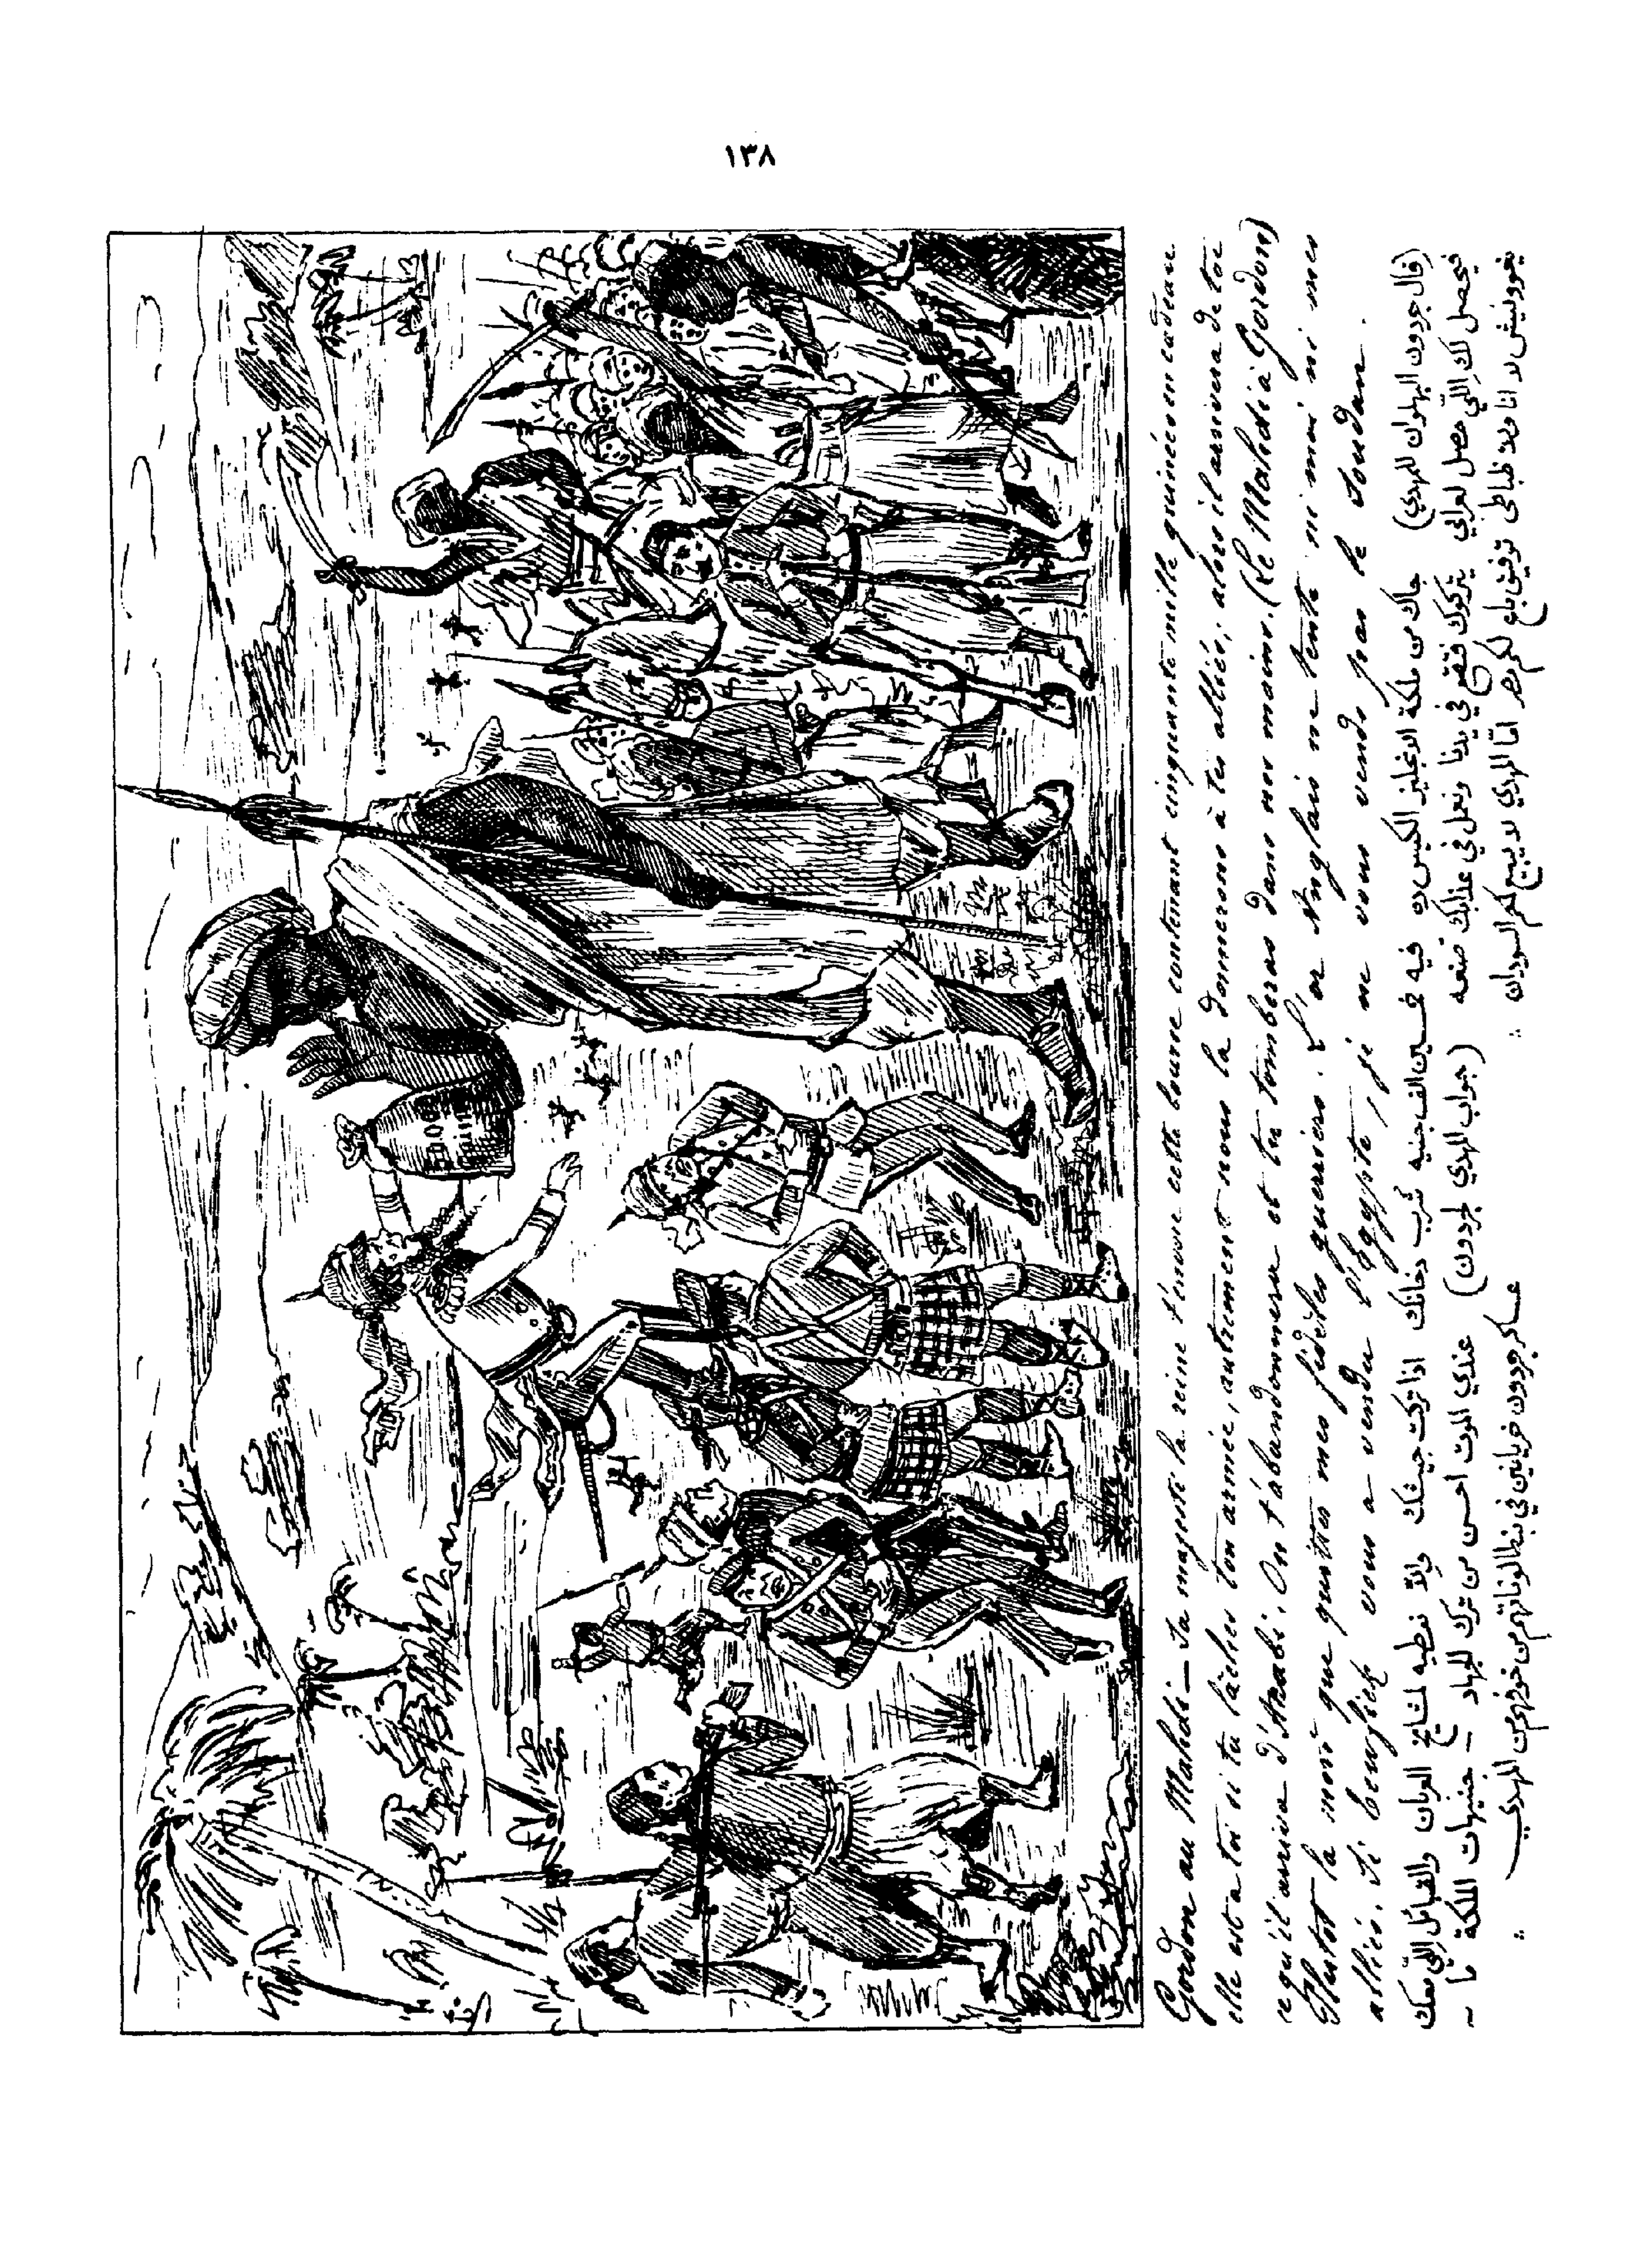 ١٣٨
50.000
Gordon au Mahdi — Sa majesté la reine t'envoie cette bourse contenant cinquante mille guinées en cadeau
elle est a toi si tu lâches ton armée, autrement nous la donnerons à tes alliés, alors il arrivera de toi
ce qu'il arriva d'Arabi. On t'abandonnera et tu tomberas dans nos mains. (Le Mahdi à Gordon)
Plutot la mort que quitter mes fidèles guerriers. L'or Anglais ne tente ni moi ni mes
alliés. Si Tewfick vous a vendu l'Égypte, je ne vous vends pas le Soudan.
(قال جردون البهلوان للمهدي) جاك من ملكة الانجليز الكيس ده فيه خمسين الف جنيه شرب دخانك اذا تركت جيشك والا نعطيه لمشايخ العربان والقبائل اللي معك
فيحصل لك اللي حصل لعرابي يتركوك فتقع في يدنا ونعمل في عذابك صنعه (جواب المهدي لجردون) عندي الموت احسن من ترك الجهاد — جنيهات الملكة ما
يغرونيش لا انا ولا ظباطي توفيق باع لكم مصر اما المهدي لا يبيع لكم السودان عساكر جردون خريانين في بنطالوناتهم من خوفهم من المهدي